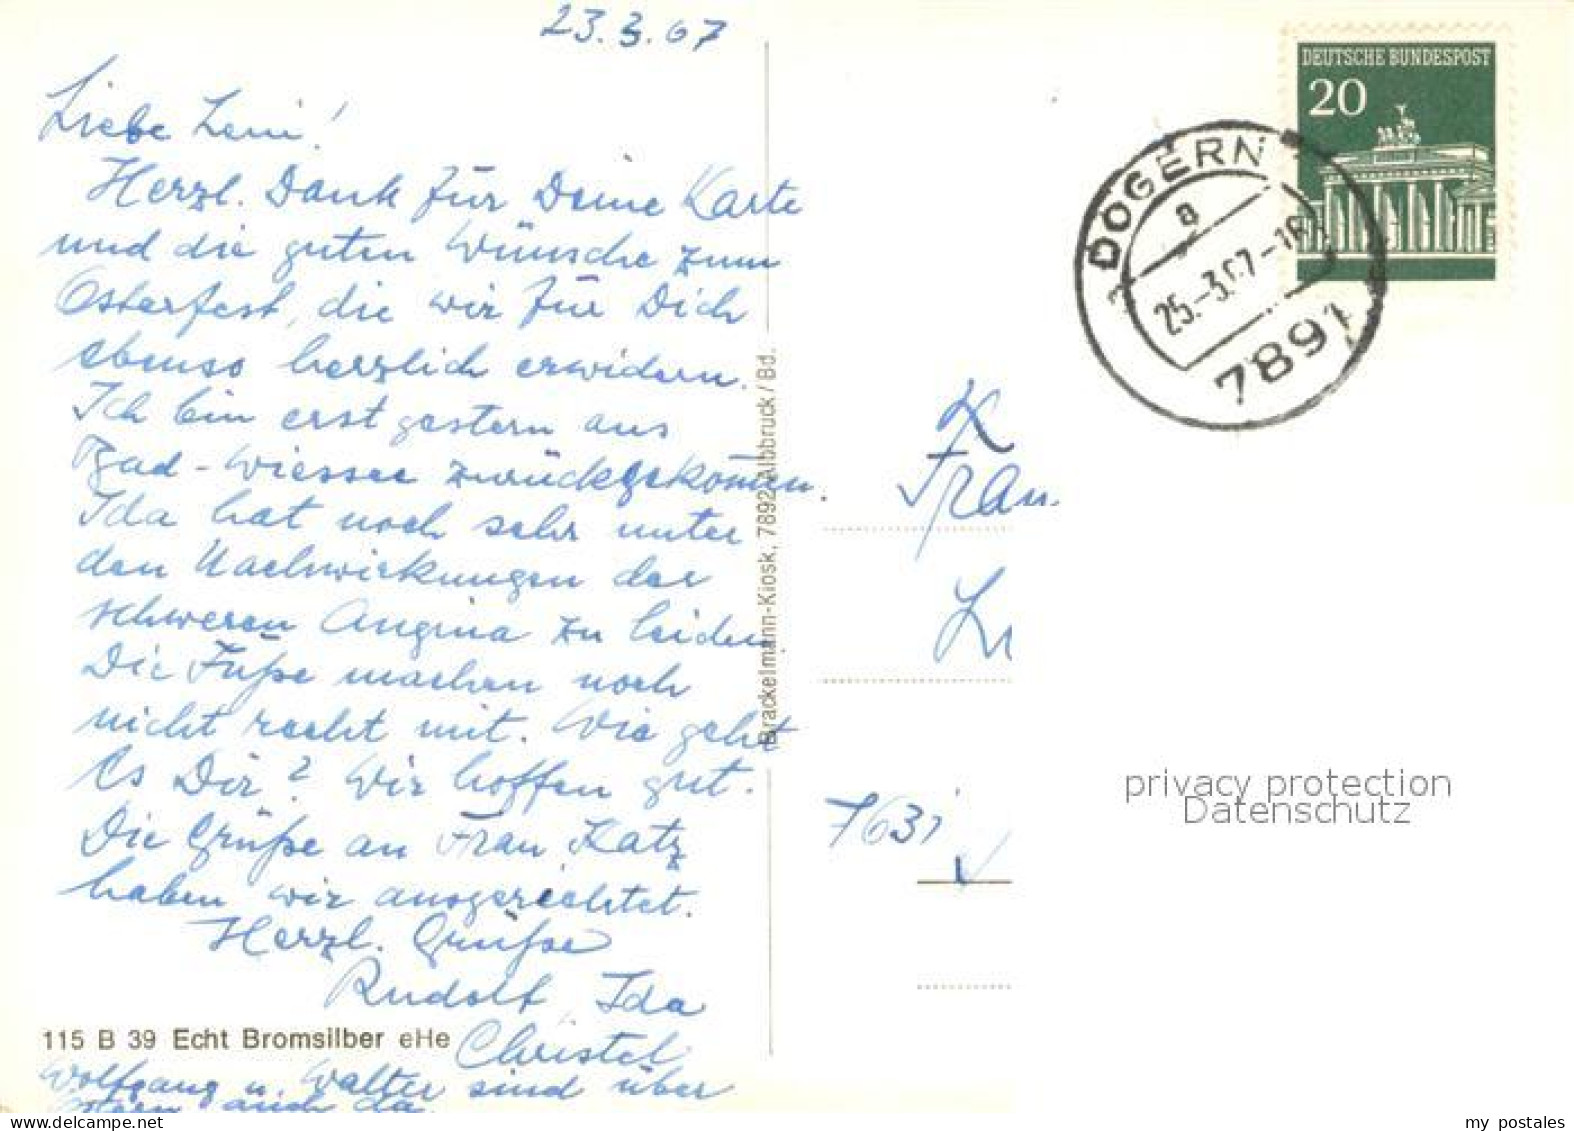 23.3.67
Liebe Leni!
Herzl. Dank für Deine Karte
und die guten Wünsche zum
Osterfest, die wir für Dich
ebenso herzlich erwidern.
Ich bin erst gestern aus
Bad-Wiessee zurückgekommen.
Ida hat noch sehr unter
den Nachwirkungen der
schweren Angina zu leiden
Die Füße machen noch
nicht recht mit. Wie geht
es Dir? Wir hoffen gut.
Die Grüße an Frau Katz
haben wir ausgerichtet.
Herzl. Grüße
Rudolf, Ida
Christel.
Wolfgang u. Walter sind über
Ostern auch da.
115 B 39 Echt Bromsilber eHe
Brackelmann-Kiosk, 7892 Albbruck / Bd.
DEUTSCHE BUNDESPOST
20
DOGERN
a
25.-3.67-18
7891
Frau
763
privacy protection
Datenschutz
www.delcampe.net
my postales